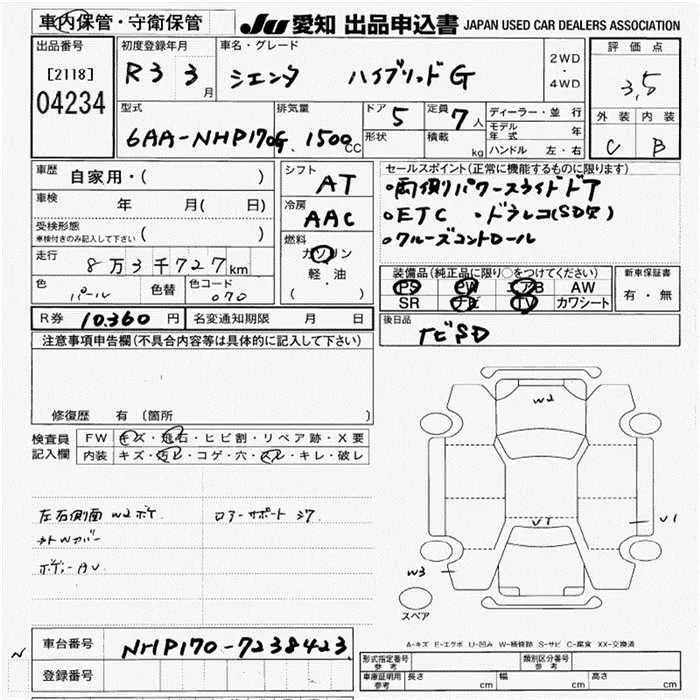 車内保管・守衛保管
JU 愛知 出品申込書 JAPAN USED CAR DEALERS ASSOCIATION
出品番号
[2118]
04234
初度登録年月
R3 3月
車名・グレード
シエンタ ハイブリッドG
2WD
・
4WD
評価点
3.5
外装 内装
C B
型式
6AA-NHP170G
排気量
1500cc
ドア
5
定員
7人
形状
積載
kg
ディーラー・並行
モデル年式 年
ハンドル 左・右
車歴
自家用・( )
車検 年 月( 日)
受検形態
車検付きのみ記入して下さい ( )
走行
8万3千727km
色
パール
色替
色コード
070
シフト
AT
冷房
AAC
燃料
ガソリン
軽・油
( )
セールスポイント(正常に機能するものに限ります)
・両側パワースライドドア
・ETC ・ドラレコ(SD欠)
・クルーズコントロール
装備品(純正品に限り○をつけてください)
PS PW エアB AW
SR ナビ TV カワシート
新車保証書
有・無
R券 10.360円
名変通知期限 月 日
後日品
ナビSD
注意事項申告欄(不具合内容等は具体的に記入して下さい)
修復歴 有 〔箇所 〕
検査員
記入欄
FW キズ・飛石・ヒビ割・リペア跡・X要
内装 キズ・汚レ・コゲ・穴・スレ・キレ・破レ
左右側面 W2ボケ
ロアーサポート シワ
外Wカバー
ボディーAU
W2
V1
V1
W3
スペア
車台番号
NHP170-7238423
N
登録番号
A-キズ E-エクボ U-凹み W-補修跡 S-サビ C-腐食 XX-交換済
形式指定番号
参考
類別区分番号
参考
車庫証明用
参考
長さ cm 幅 cm 高さ cm